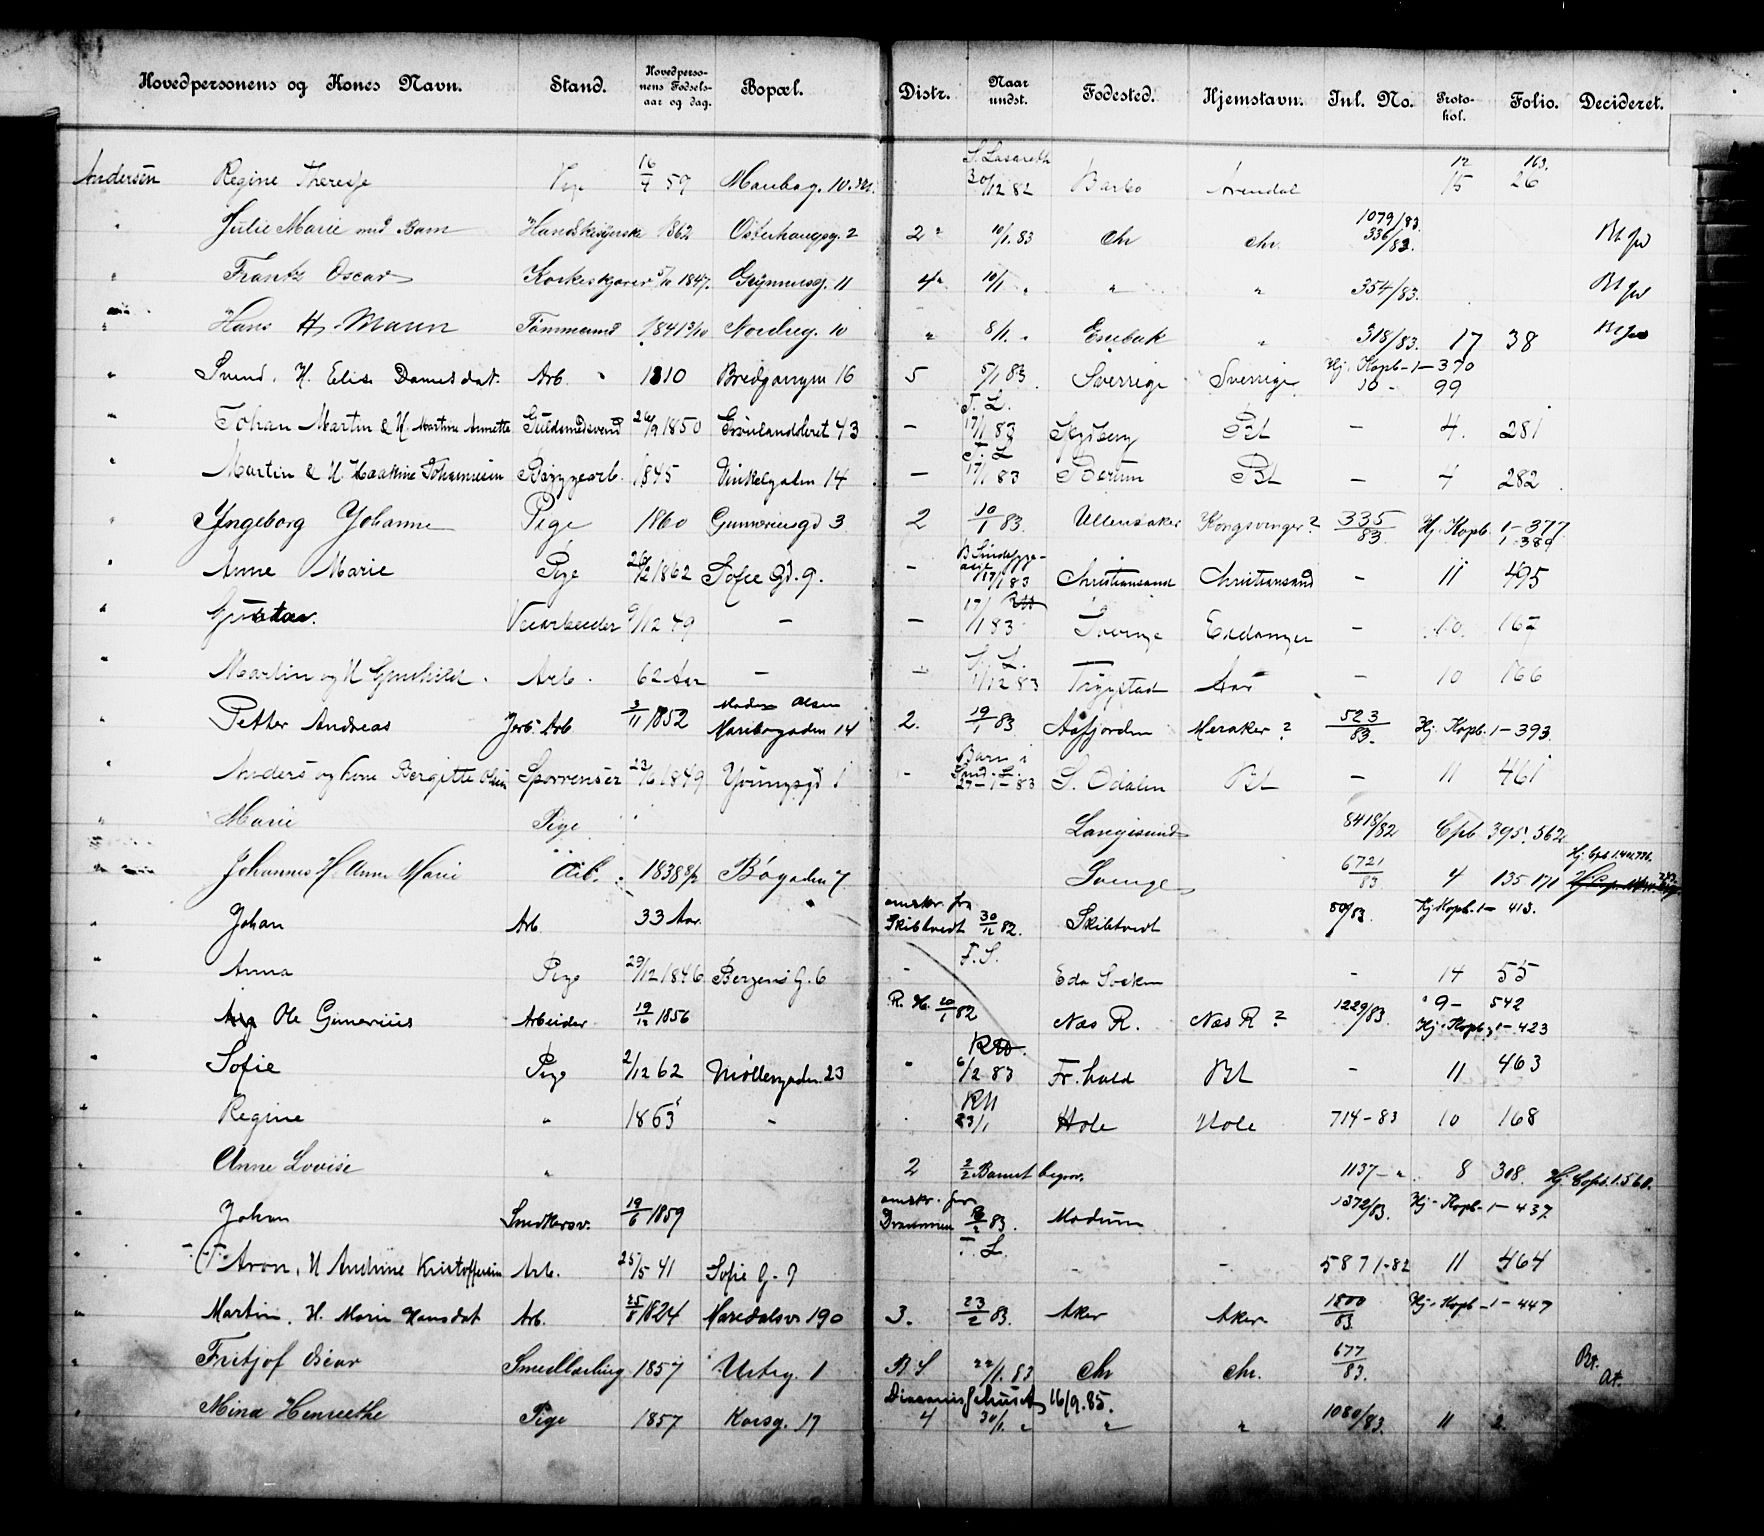 Hovedpersonens og Kones Navn. Stand. Hovedpersonens Fødselsaar og dag. Bopæl. Distr. Naar undst. Fødested. Hjemstavn. Inl. No. Protokol. Folio. Decideret.
Andersen Regine Therese 16/7 59 S. Lasareth 30/12 82 Barbo Arendal 12 163. 15 26
" Julie Marie med Barn 1862 Osterhausg. 2 2 10/1. 83 Chr chr. 1079/83. 336/83.
" Frantz Oscar Korkeskjærer 5/10 1847. Grønneg. 11 4 10/1 " " " 354/83.
" Hans H. Maren Tømmermd 1841 3/10 Nordreg. 10 " 8/1. " Enebak " 318/83. 17 38
" Svend. H. Elise Danielsdat. Arb. 1810 Bredgangen 16 5 5/1 83 Sverrige Sverrige Hj. Kopb-1-370 10 - 99
" Johan Martin & H. Martine Annette Guldsmedsvend 26/9 1850 Grønlandsleret 43 - T. L. 17/1 83 Bt - 4. 281
" Martin & H. Haakine Johannesen Bryggearb. 1845 Vinkelgaden 14 - T. L. 17/1 83 Bærum Bt - 4 282
" Ingeborg Johanne Pige 1860 Gunneriusgd 3 2 10/1 83. Ullensaker Kongsvinger? 335/83 Hj. Kopb. 1-377 1-389
" Anne Marie Pige 26/2 1862 Sofie Gd. 9. - 17/1 83 Christiansand Christiansand - 11 495
" Gustav. Veiarbeider 9/12 49 - - 17/1 83 Sverige - 10. 167
" Martin og H Gunhild. Arb. 62 Aar - - S. L. 1/12 83 Trygstad Aas - 10 166
" Petter Andreas Jernb. Arb. 3/11 1852 Madam Olsen Maribogaden 14 2. 19/1 83 Aafjorden Meraker? 523/83. Hj. Kopb. 1-393.
" Anders og kone Bergitte Olsen Sporrenser 23/6 1849 Youngsgd 1 - Barn i Sind. L. 27-1-83 S. Odalen Bt - 11 461
" Marie Pige Langesund 8418/82 Cpb 395. 562
" Johannes H. Anne Marie Arb. 1838 8/2 Bøgaden 7 Sverige 6721/83 4 135. 171 Hj. Cpb. 1.
" Johan Arb. 33 Aar. omskr. fra Skibtvedt 30/12 82. Skibtvedt 50/83. Hj Kopb. 1- 413.
" Anna Pige 29/12 1846 Bergens G. 6 - F. S. Eda Socken - 14 55
" Ole Gunerius Arbeider 19/12 1856 R. H. 20/1 82 Næs R. Næs R? 1229/83. 9- 542 Hj. Kopb. 1-423
" Sofie Pige 2/12 62 Møllergaden. 23 " 6/2 83 Fr. hald Bt - 11 463
" Regine " 1863 - RH 23/1 Hole Hole 714-83 10 168
" Anne Lovise " 2 2/2 Barnet begr. 1137-" 8 308. Hj. Copb. 1. 560.
" Johan Smedkersv. 19/6 1859 omskr. fra Drammen 2/2 83. Modum 1372/83. Hj. Kopb. 1- 437
" Aron, H Andrine Kristoffersen Arb. 25/5 41 Sofie G. 9 T. L. - - 5871-82 11 464
" Martin. H. Marie Hansdat Arb. 25/8 1824 Maridalsv 190 3. 23/2 83. Aker Aker 1800/83 Hj. Kopb-1-447
" Fritjof Oscar Smedlærling 1857 Urteg. 1 B S 22/1. 83 Chr Chr. 677/83. Bt. At.
" Mina Henriette Pige 1857 Korsg. 17 Diaconissehuset 16/9. 85. 4 30/1. " " " 1080/83. 11 2.